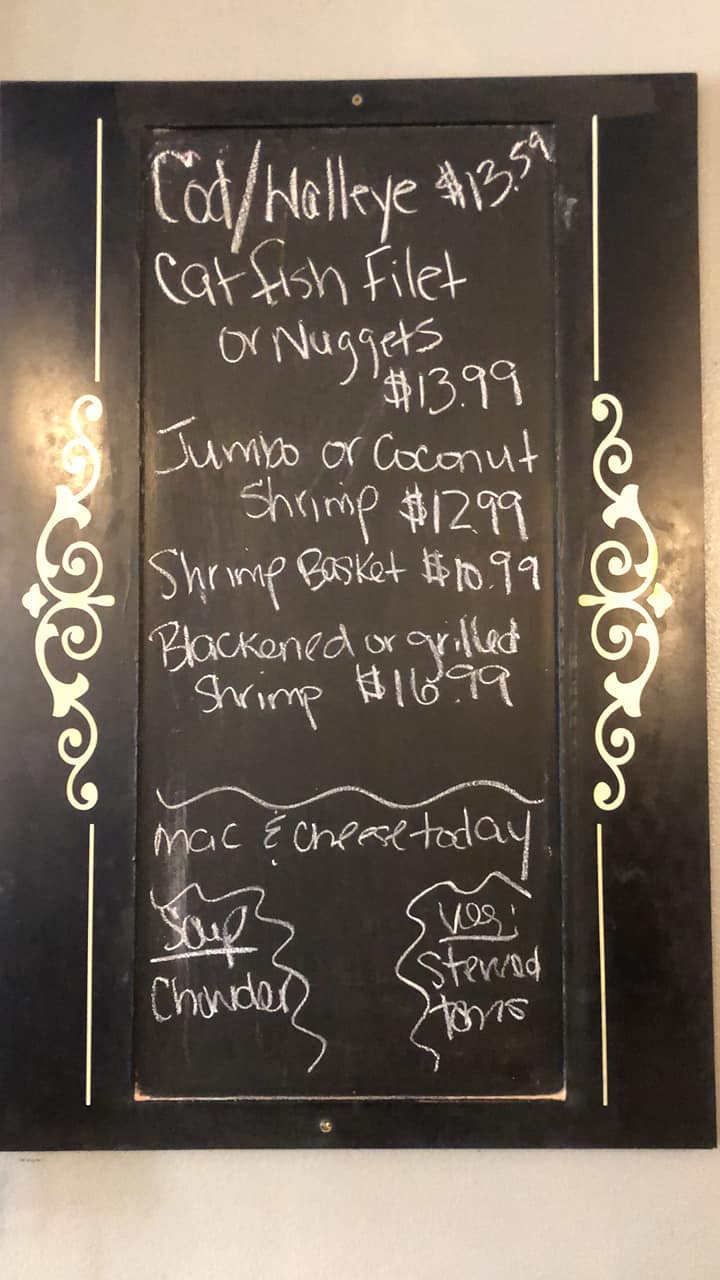 Cod/Walleye $13.59
Catfish Filet
or Nuggets
$13.99
Jumbo or Coconut
Shrimp $12.99
Shrimp Basket $10.99
Blackened or grilled
Shrimp $16.99
mac & cheese today
Soup
Chowder
Veg:
Stewed
toms